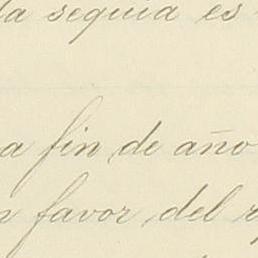 la seguia es
a fin de año
n favor del